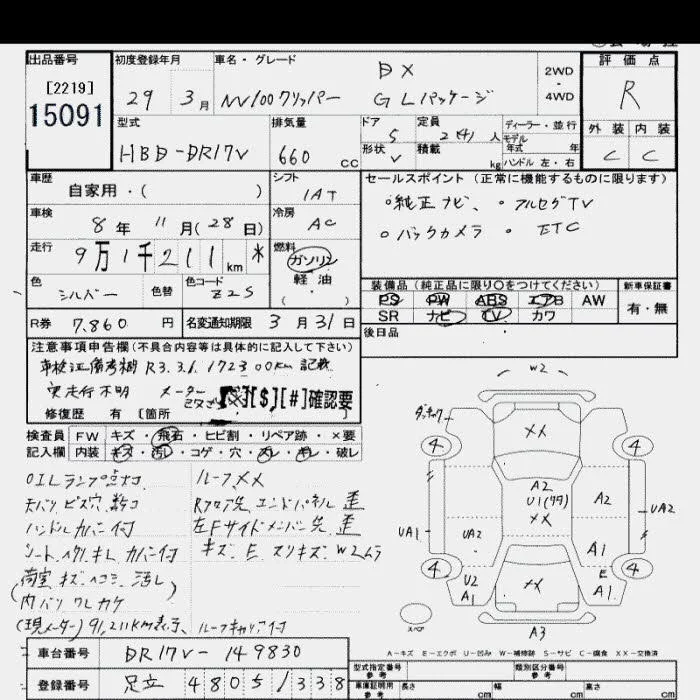 出品番号
[2219]
15091
初度登録年月
29 3月
車名・グレード
NV100クリッパー
DX
GLパッケージ
2WD
・
4WD
評価点
R
外装 内装
C C
型式
HBD-DR17V
排気量
660 cc
ドア
5
定員
2(4)人
ディーラー・並行
モデル
年式 年
形状
V
積載
kg
ハンドル 左・右
車歴
自家用・( )
シフト
1AT
セールスポイント (正常に機能するものに限ります)
○純正ナビ、 ・フルセグTV
○バックカメラ ・ ETC
車検
8年 11月(28日)
冷房
AC
走行
9万1千211km *
燃料
ガソリン
軽油
( )
色
シルバー
色替
色コード
Z2S
装備品 (純正品に限り○をつけてください)
PS PW ABS エアB AW
SR ナビ TV カワ
新車保証書
有・無
R券 7,860円
名変通知期限 3月31日
後日品
注意事項申告欄 (不具合内容等は具体的に記入して下さい)
車検証備考欄 R3.3.6 172300km 記載
実走行不明 メーター
[$][#]確認要
修復歴 有 [箇所
検査員
記入欄
FW キズ・飛石・ヒビ割・リペア跡・×要
内装 キズ・汚レ・コゲ・穴・スレ・キレ・破レ
OILランプ点灯 ルーフ〆〆
天バリビス穴、数ケ Rフロア先、エンドパネル 歪
ハンドルカバー付 左Fサイドメンバー先 歪
シート、ヘタリ キレ カバー付 キズ、E スリキズ、W2ムラ
(荷室 キズ・ヘコミ 汚レ)
内バリ ワレカケ
(現メーター) 91,211km表示、ルーフキャリア付
W2
XX
4
4
A2
U1
XX
A2
UA1
UA2
UA2
A1
U2
A1
E
A1
4
4
XX
スペア
A3
A-キズ E-エクボ U-凹み W-補修跡 S-サビ C-腐食 XX-交換済
車台番号
DR17V-149830
登録番号
足立 480 ら/338
型式指定番号
参考
類別区分番号
参考
車庫証明用
参考
長さ cm
幅 cm
高さ cm